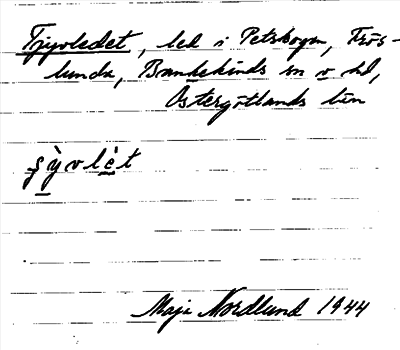 Tjyvledet, led i Petskogen, Frös-
lunda, Brunnekinds sn o hd,
Östergötlands län
şỳvlèt
Maja Nordlund 1944